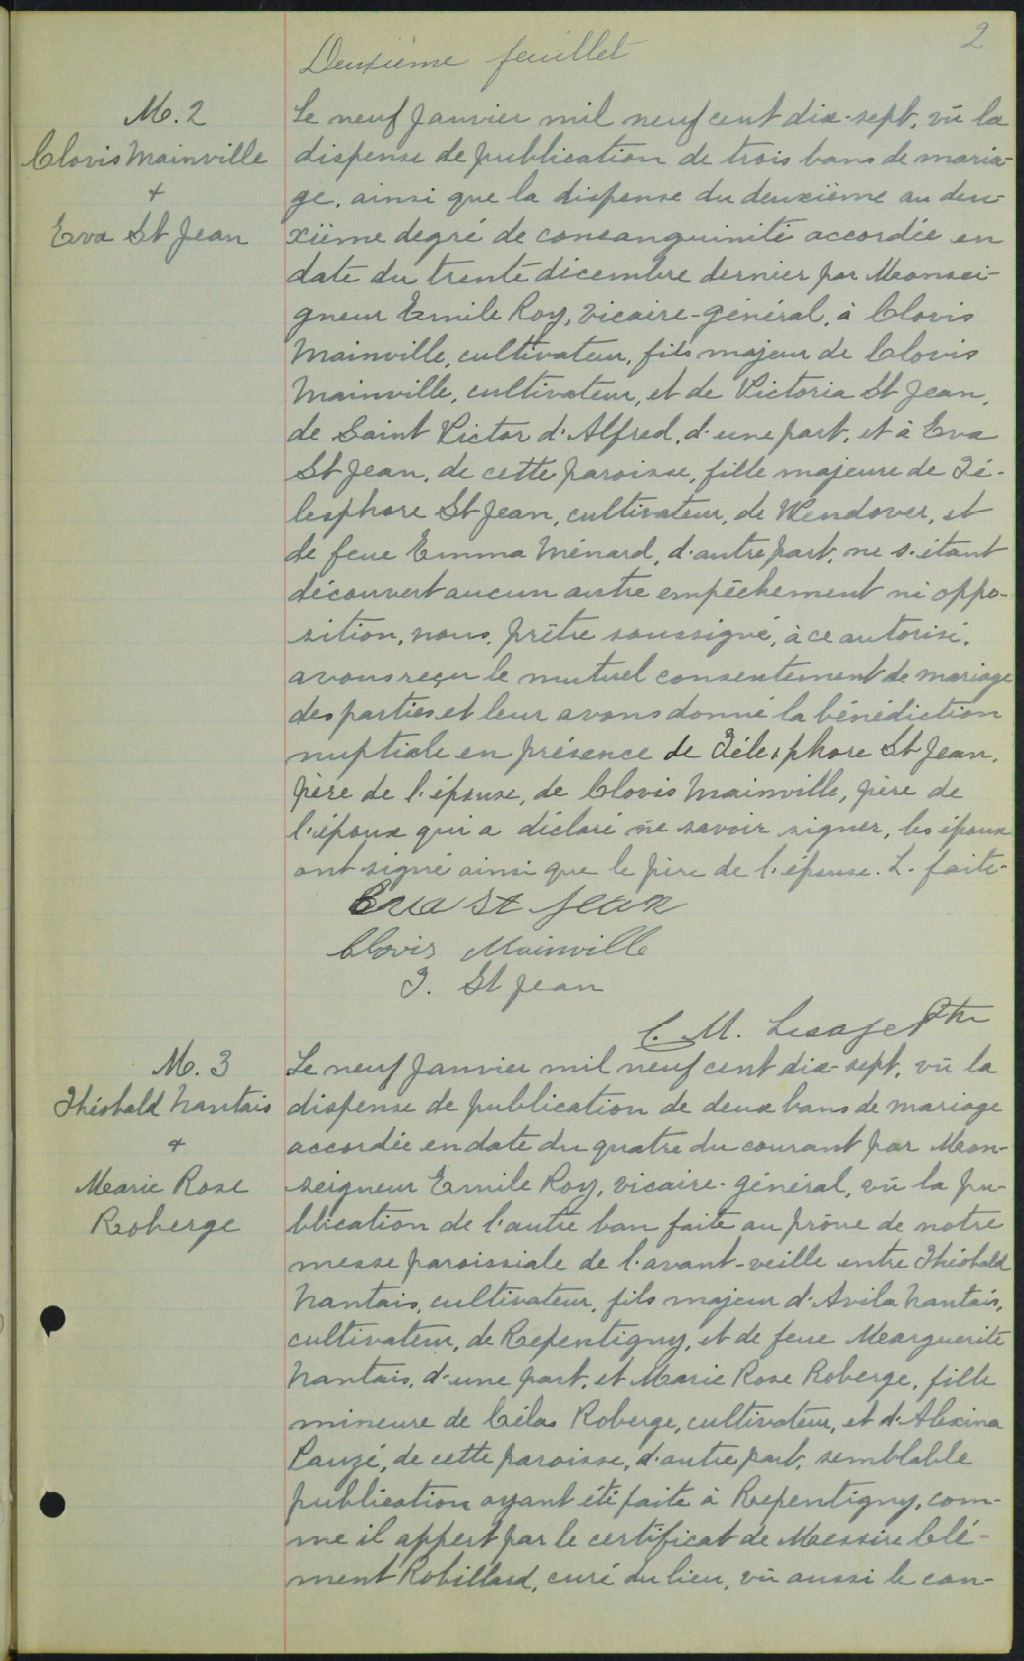 2
Deuxième feuillet
M. 2
Clovis Mainville
+
Eva St Jean
Le neuf Janvier mil neuf cent dix-sept, vû la
dispense de publication de trois bans de maria-
ge, ainsi que la dispense du deuxième au deu-
xième degré de consanguinité accordée en
date du trente décembre dernier par Monsei-
gneur Emile Roy, Vicaire-général, à Clovis
Mainville, cultivateur, fils majeur de Clovis
Mainville, cultivateur, et de Victoria St Jean,
de Saint Victor d'Alfred, d'une part, et à Eva
St Jean, de cette paroisse, fille majeure de Té-
lesphore St Jean, cultivateur, de Wendover, et
de feue Emma Ménard, d'autre part, ne s'étant
découvert aucun autre empêchement ni oppo-
sition, nous, prêtre soussigné, à ce autorisé,
avons reçu le mutuel consentement de mariage
des parties et leur avons donné la bénédiction
nuptiale en présence de Télesphore St Jean,
père de l'épouse, de Clovis Mainville, père de
l'époux qui a déclaré ne savoir signer, les époux
ont signé ainsi que le père de l'épouse. L. faite-
Eva St Jean
Clovis Mainville
T. St Jean
C. M. Lesage Ptre
M. 3
Théobald Nantais
+
Marie Rose
Roberge
Le neuf Janvier mil neuf cent dix-sept, vû la
dispense de publication de deux bans de mariage
accordée en date du quatre du courant par Mon-
seigneur Emile Roy, vicaire-général, vû la pu-
blication de l'autre ban faite au prône de notre
messe paroissiale de l'avant-veille entre Théobald
Nantais, cultivateur, fils majeur d'Avila Nantais,
cultivateur, de Repentigny, et de feue Marguerite
Nantais, d'une part, et Marie Rose Roberge, fille
mineure de Célas Roberge, cultivateur, et d'Alexina
Pauzé, de cette paroisse, d'autre part, semblable
publication ayant été faite à Repentigny, com-
me il appert par le certificat de Messire Clé-
ment Robillard, curé du lieu, vû aussi le con-